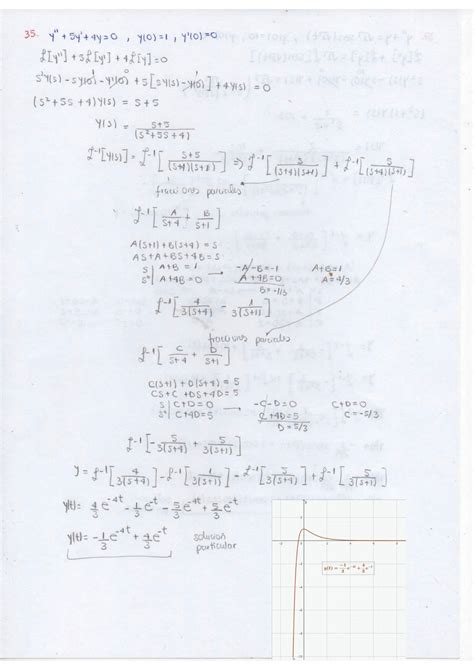 35. y''+5y'+4y=0 , y(0)=1 , y'(0)=0
ℒ[y'']+5ℒ[y']+4ℒ[y]=0
s²Y(s)-sy(0)-y'(0)+5[sY(s)-y(0)]+4Y(s)=0
(s²+5s+4)Y(s)=s+5
Y(s) = s+5/(s²+5s+4)
ℒ⁻¹[Y(s)]=ℒ⁻¹[s+5/(s+4)(s+1)] ⇒ ℒ⁻¹[s/(s+4)(s+1)] + ℒ⁻¹[5/(s+4)(s+1)]
fracciones parciales
ℒ⁻¹[A/s+4 + B/s+1]
A(s+1)+B(s+4)=s
AS+A+BS+4B=s
s | A+B=1 -A-B=-1 A+B=1
s⁰ | A+4B=0 A+4B=0 A=4/3
B=-1/3
ℒ⁻¹[4/3(s+4) - 1/3(s+1)]
fracciones parciales
ℒ⁻¹[C/s+4 + D/s+1]
C(s+1)+D(s+4)=5
CS+C+DS+4D=5
s | C+D=0 -C-D=0 C+D=0
s⁰ | C+4D=5 C+4D=5 C=-5/3
D=5/3
ℒ⁻¹[-5/3(s+4) + 5/3(s+1)]
y=ℒ⁻¹[4/3(s+4)]-ℒ⁻¹[1/3(s+1)]-ℒ⁻¹[5/3(s+4)]+ℒ⁻¹[5/3(s+1)]
y(t)=4/3 e^-4t - 1/3 e^-t - 5/3 e^-4t + 5/3 e^-t
y(t)=-1/3 e^-4t + 4/3 e^-t solucion
particular